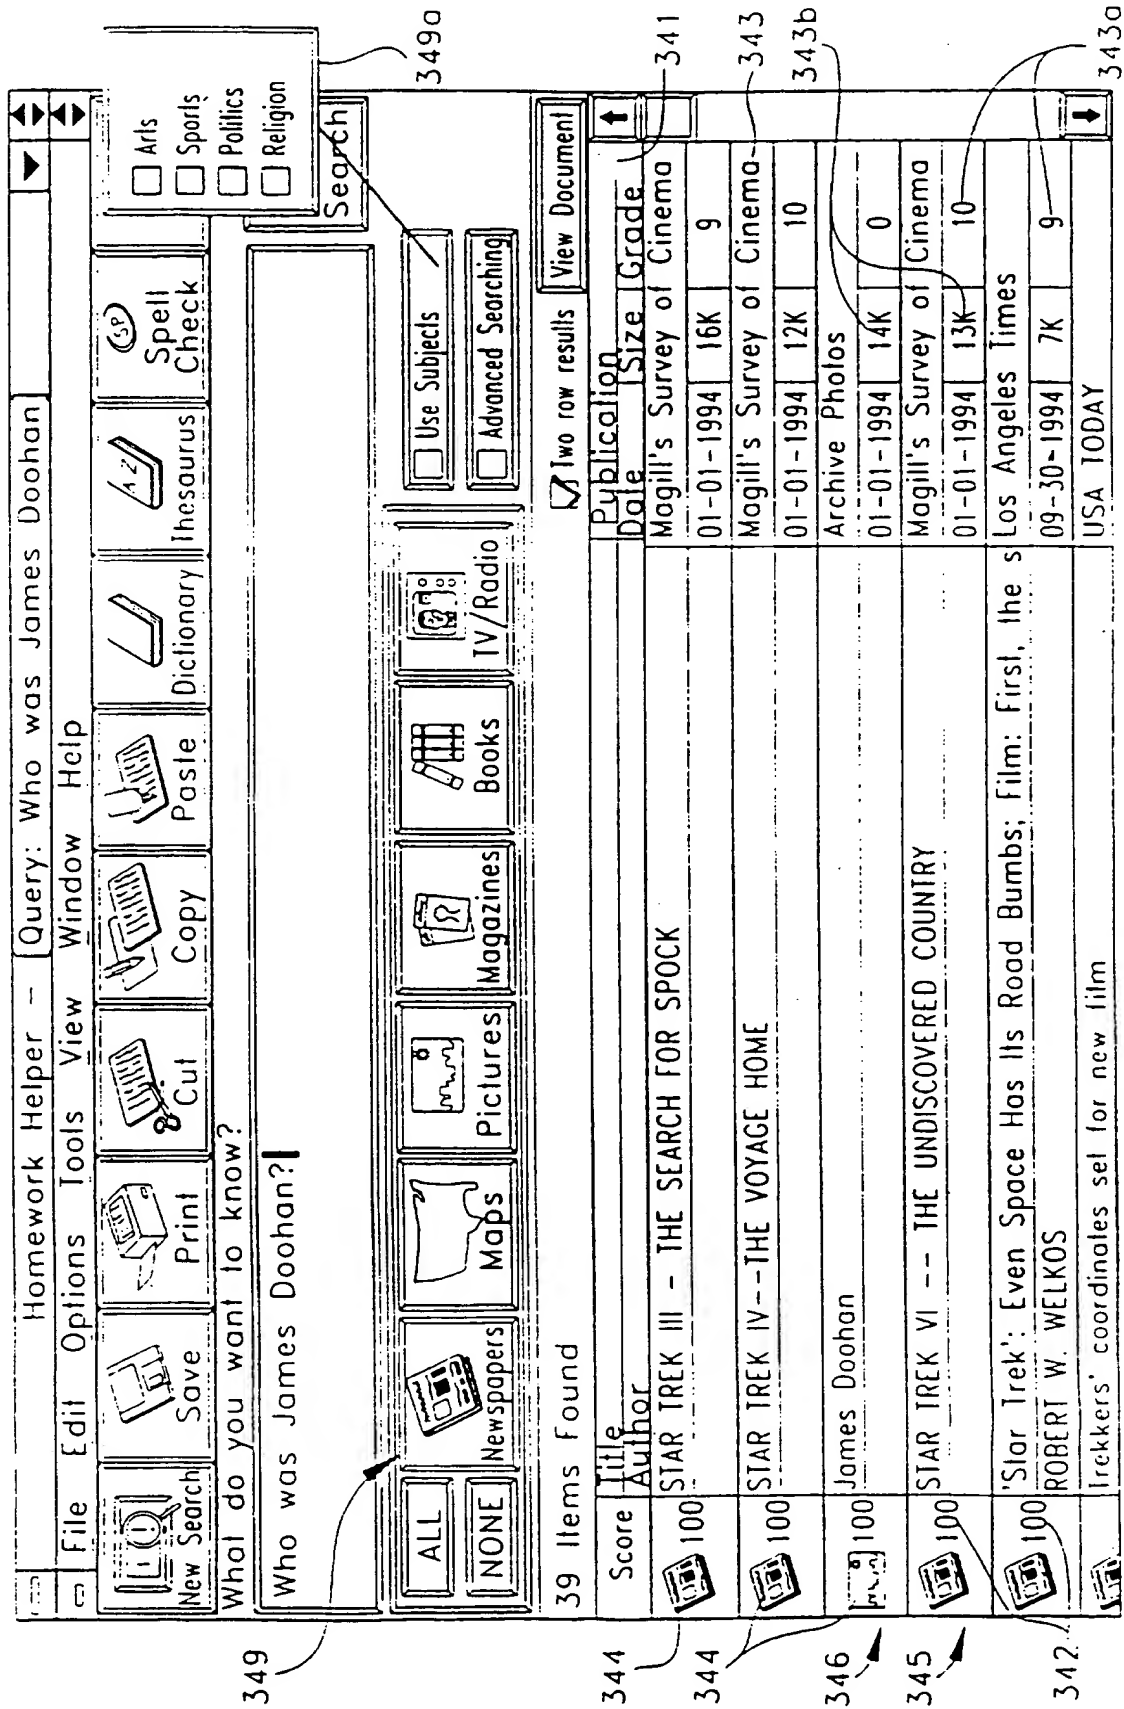 Homework Helper - Query: Who was James Doohan
File Edit Options Tools View Window Help
New Search Save Print Cut Copy Paste Dictionary Thesaurus Spell Check
Arts
Sports
Politics
Religion
349a
What do you want to know?
Who was James Doohan?
Search
349
ALL
NONE
Newspapers Maps Pictures Magazines Books TV/Radio
Use Subjects
Advanced Searching
39 Items Found
Two row results View Document
Score Title Publication
Author Date Size Grade
341
344 100 STAR TREK III - THE SEARCH FOR SPOCK Magill's Survey of Cinema
01-01-1994 16K 9
344 100 STAR TREK IV--THE VOYAGE HOME Magill's Survey of Cinema 343
01-01-1994 12K 10
346 100 James Doohan Archive Photos 343b
01-01-1994 14K 0
345 100 STAR TREK VI -- THE UNDISCOVERED COUNTRY Magill's Survey of Cinema
01-01-1994 13K 10
342 100 'Star Trek': Even Space Has Its Road Bumbs; Film: First, the s Los Angeles Times
ROBERT W. WELKOS 09-30-1994 7K 9 343a
Trekkers' coordinates set for new film USA TODAY